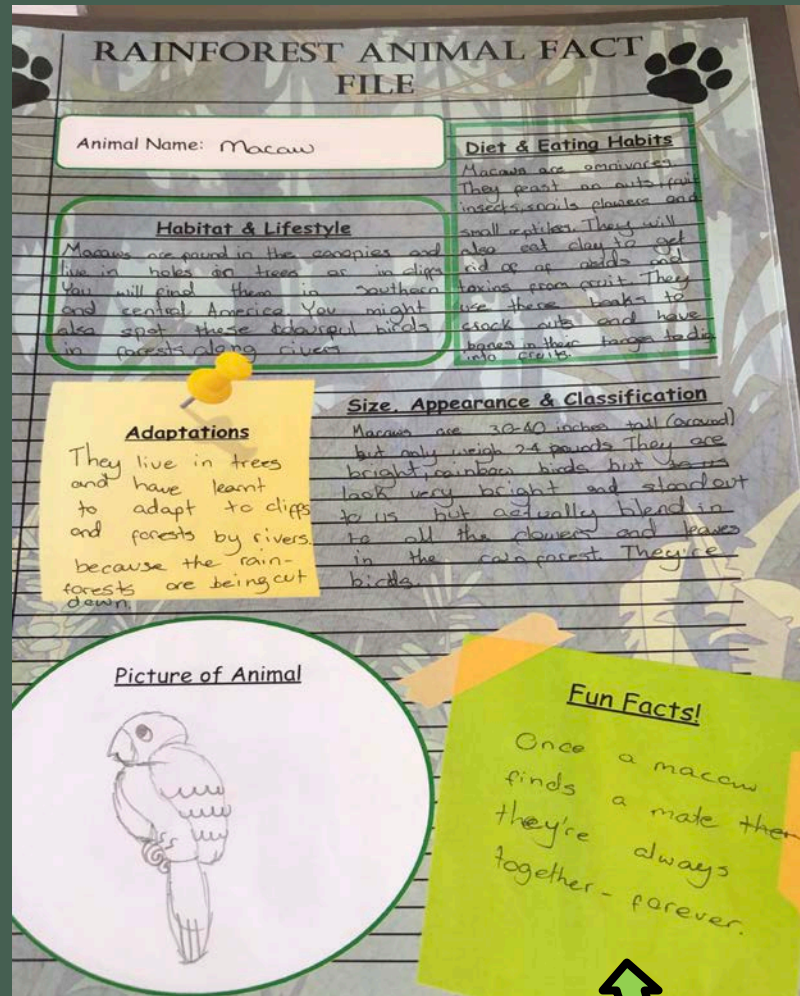 RAINFOREST ANIMAL FACT
FILE
Animal Name: Macaw
Habitat & Lifestyle
Macaws are found in the canopies and
live in holes on trees or in cliffs
You will find them in southern
and central America. You might
also spot these colourful birds
in forests along rivers
Diet & Eating Habits
Macaws are omnivores.
They feast on nuts, fruit
insects, snails flowers and
small reptiles. They will
also eat clay to get
rid of of acids and
toxins from fruit. They
use there beaks to
crack nuts and have
bones in their tonges to dig
into fruits.
Adaptations
They live in trees
and have learnt
to adapt to cliffs
and forests by rivers.
because the rain-
forests are being cut
down.
Size, Appearance & Classification
Macaws are 30-40 inches tall (around)
but only weigh 2-4 pounds They are
bright, rainbow birds but to us
look very bright and standout
to us but actually blend in
to all the flowers and leaves
in the rainforest. They're
birds.
Picture of Animal
Fun Facts!
Once a macaw
finds a mate then
they're always
together - forever.